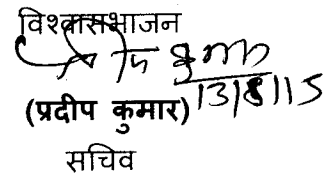 विश्वासभाजन
13/8/15
(प्रदीप कुमार)
सचिव